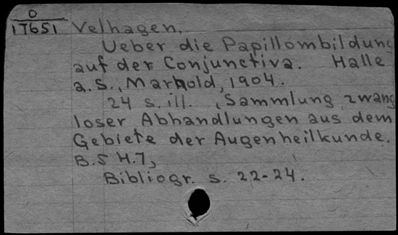 O
17651 Velhagen.
Ueber die Papillombildung
auf der Conjunctiva. Halle
a.S., Marhold, 1904.
24 s. ill. , Sammlung zwang
loser Abhandlungen aus dem
Gebiete der Augenheilkunde.
B.5 H.7,
Bibliogr. s. 22-24.